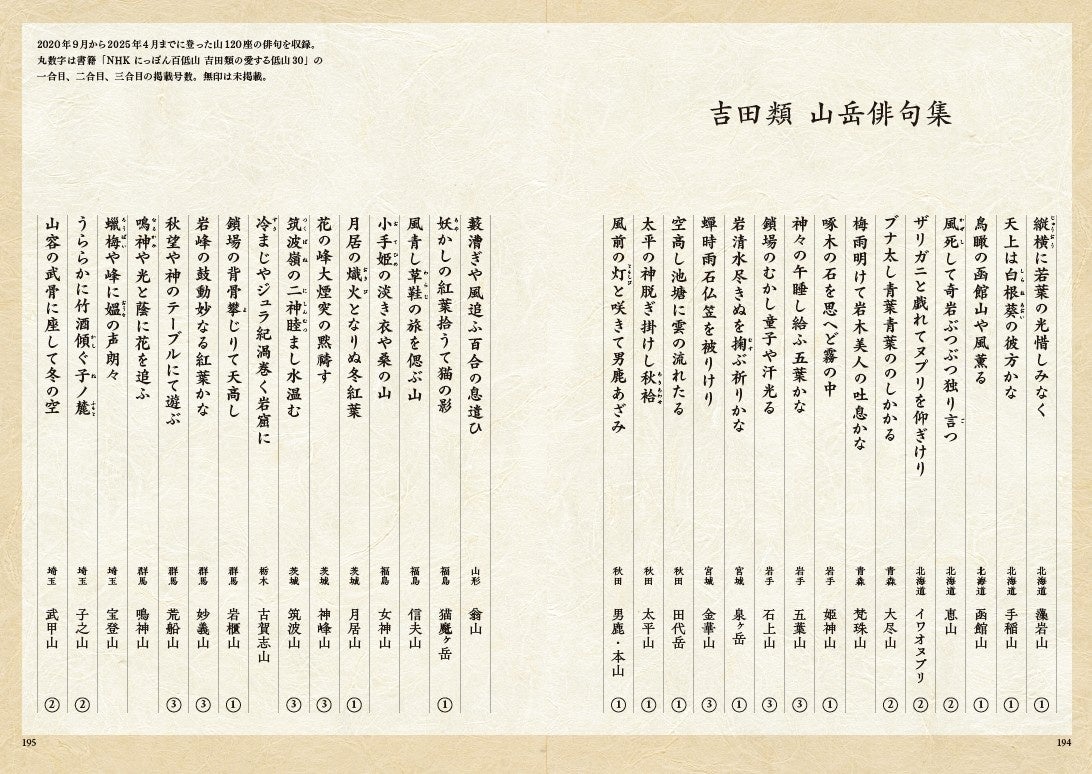 2020年9月から2025年4月までに登った山120座の俳句を収録。
丸数字は書籍「NHK にっぽん百低山 吉田類の愛する低山30」の
一合目、二合目、三合目の掲載号数。無印は未掲載。
吉田類 山岳俳句集
縦横に若葉の光惜しみなく 北海道 藻岩山 ①
天上は白根葵の彼方かな 北海道 手稲山 ①
鳥瞰の函館山や風薫る 北海道 函館山 ①
風死して奇岩ぶつぶつ独り言つ 北海道 恵山 ②
ザリガニと戯れてヌプリを仰ぎけり 北海道 イワオヌプリ ②
ブナ太し青葉青葉ののしかかる 青森 大尽山 ②
梅雨明けて岩木美人の吐息かな 青森 梵珠山
啄木の石を思へど霧の中 岩手 姫神山 ①
神々の午睡し給ふ五葉かな 岩手 五葉山 ③
鎖場のむかし童子や汗光る 岩手 石上山 ③
岩清水尽きぬを掬ぶ祈りかな 宮城 泉ヶ岳 ①
蟬時雨石仏笠を被りけり 宮城 金華山 ③
空高し池塘に雲の流れたる 秋田 田代岳 ①
太平の神脱ぎ掛けし秋袷 秋田 太平山 ①
風前の灯と咲きて男鹿あざみ 秋田 男鹿・本山 ①
藪漕ぎや風追ふ百合の息遣ひ 山形 翁山
妖かしの紅葉拾うて猫の影 福島 猫魔ヶ岳 ①
風青し草鞋の旅を偲ぶ山 福島 信夫山
小手姫の淡き衣や桑の山 福島 女神山
月居の熾火となりぬ冬紅葉 茨城 月居山 ①
花の峰大煙突の黙禱す 茨城 神峰山 ③
筑波嶺の二神睦まし水温む 茨城 筑波山 ③
冷まじやジュラ紀渦巻く岩窟に 栃木 古賀志山
鎖場の背骨攀じりて天高し 群馬 岩櫃山 ①
岩峰の鼓動妙なる紅葉かな 群馬 妙義山 ③
秋望や神のテーブルにて遊ぶ 群馬 荒船山 ③
鳴神や光と蔭に花を追ふ 群馬 鳴神山
蠟梅や峰に媼の声朗々 埼玉 宝登山
うららかに竹酒傾ぐ子ノ麓 埼玉 子之山 ②
山容の武骨に座して冬の空 埼玉 武甲山 ②
195
194